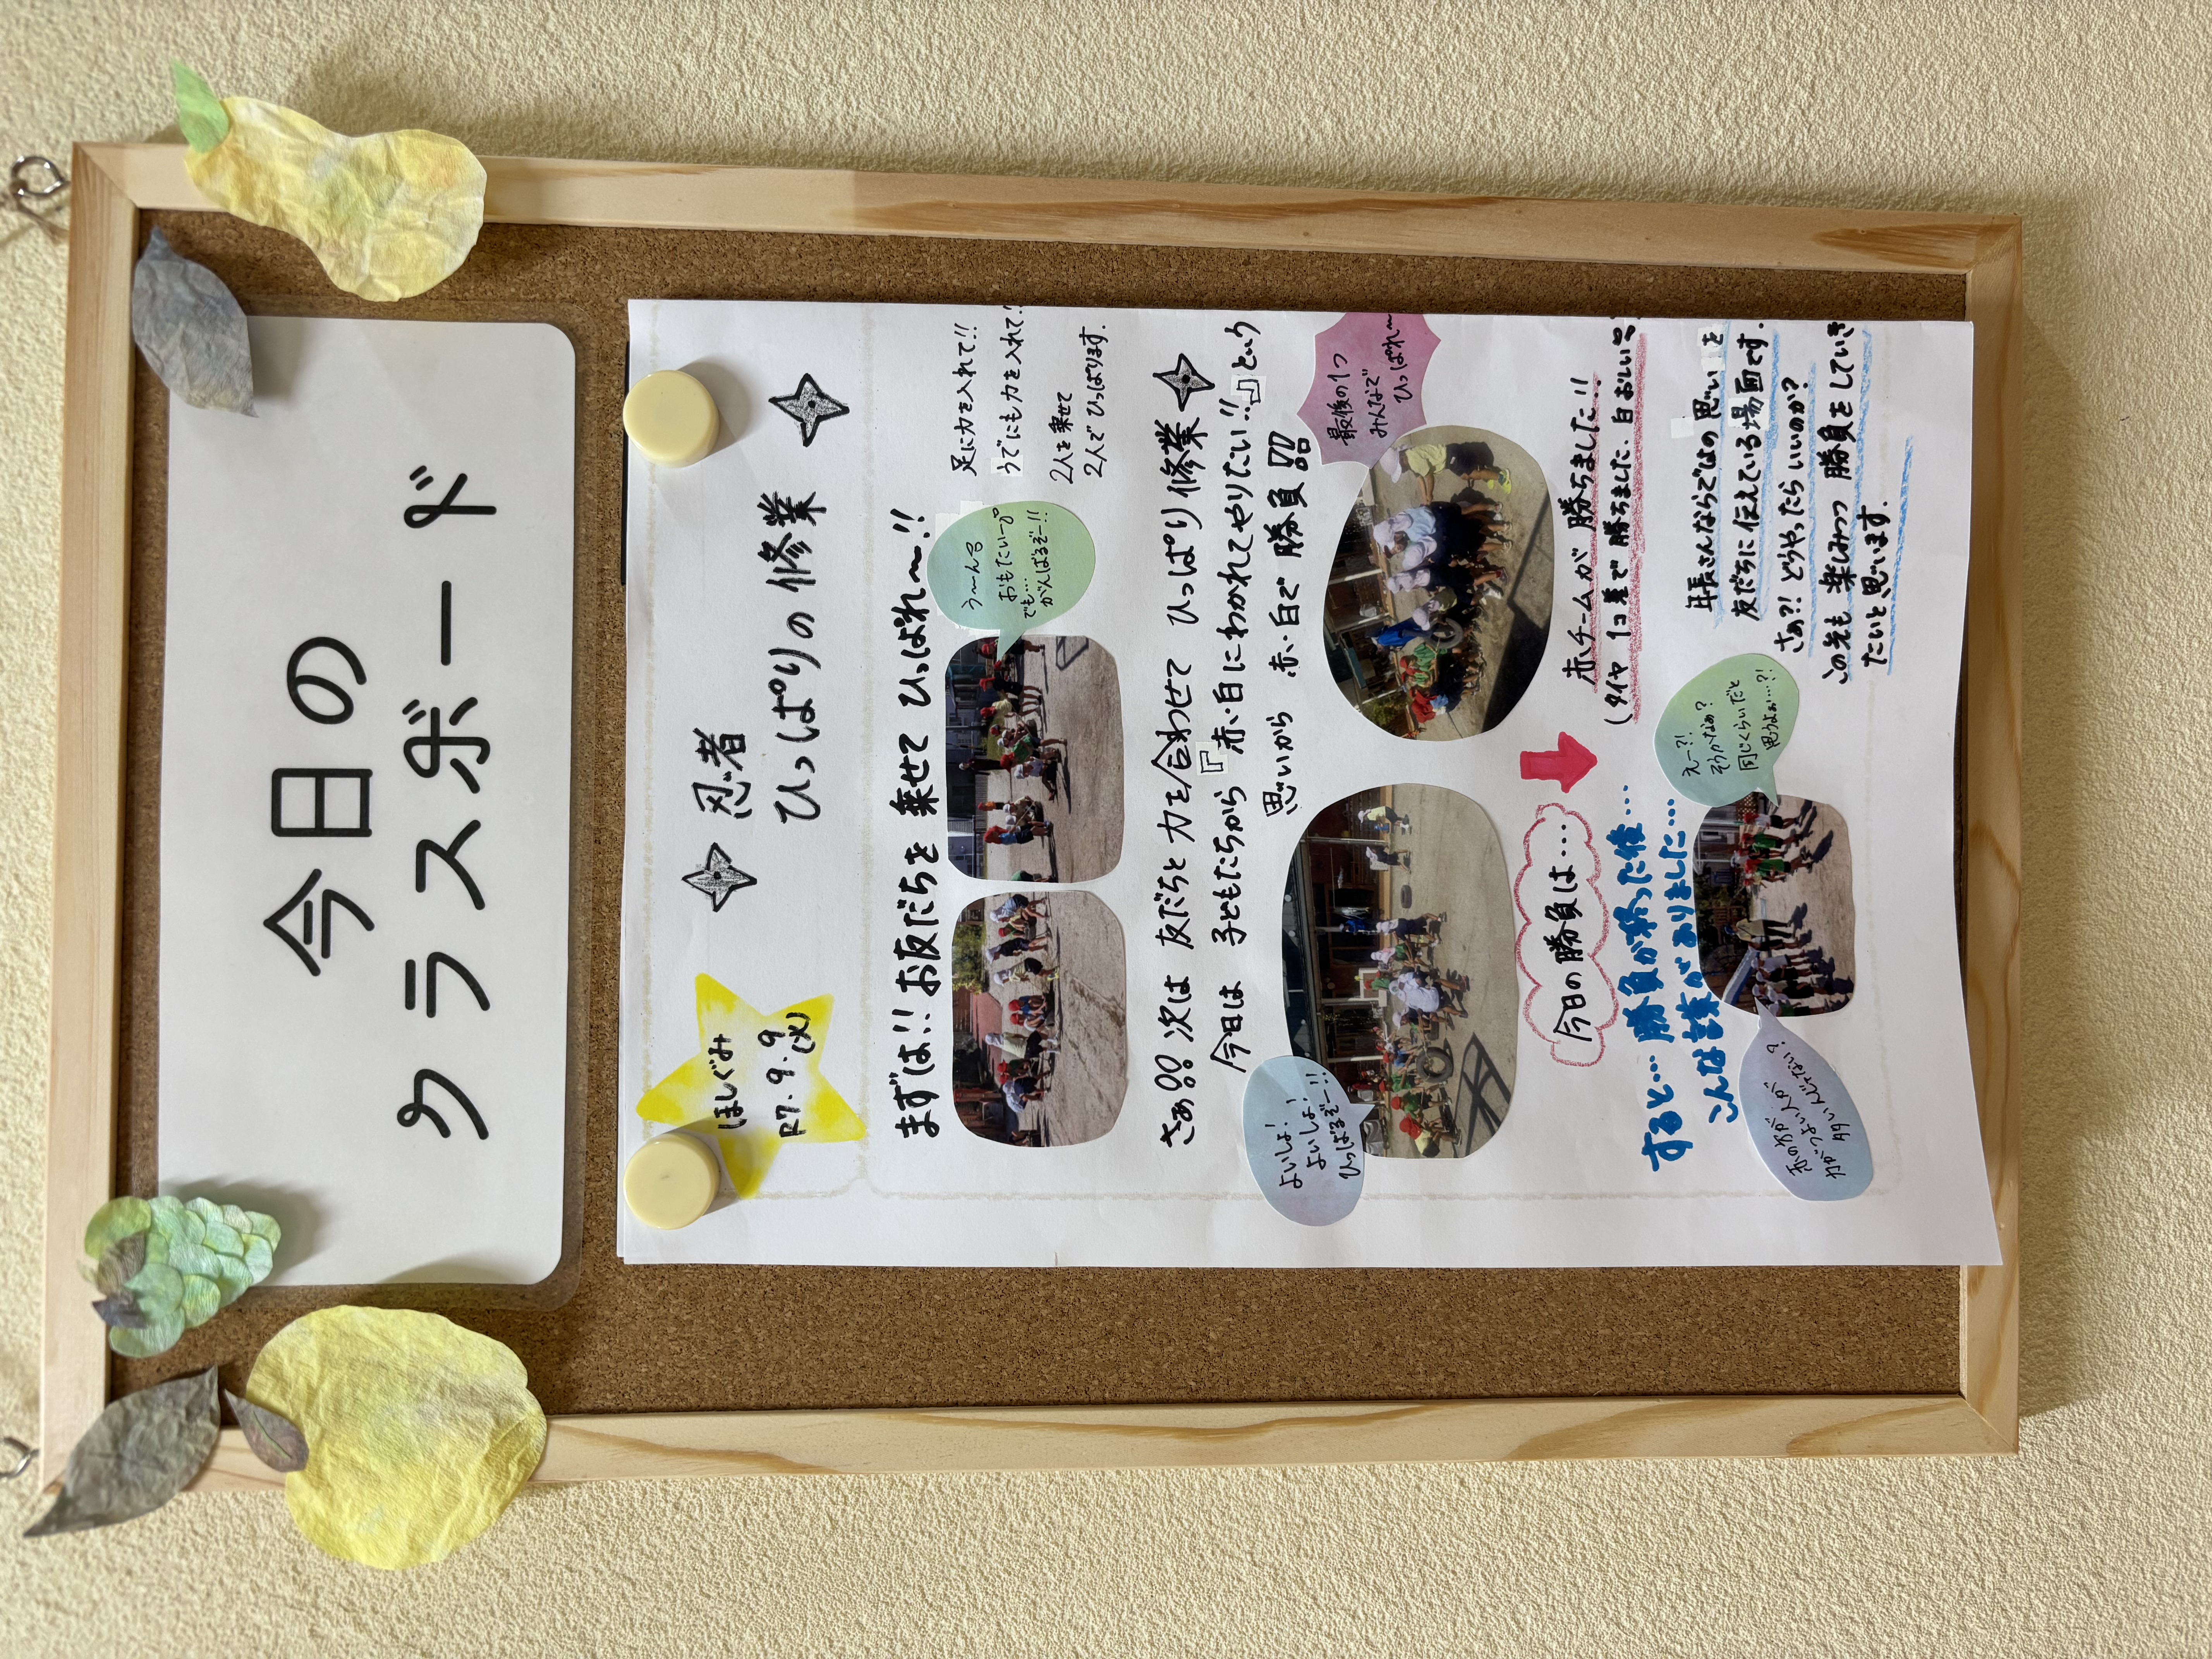 今日の
クラスボード
ほしぐみ
R7.9.9
(火)
忍者
ひっぱりの修業
まずは!!お友だちを乗せてひっぱれ〜!!
う〜ん
おもたいー
でも…
がんばるぞー!!
足に力を入れて!!
うでにも力を入れて!
2人を乗せて
2人でひっぱります.
さぁ!!次は 友だちと力を合わせて ひっぱり修業
今日は 子どもたちから『赤・白にわかれてやりたい!!』という
思いから 赤・白で勝負!!
よいしょ!
よいしょ!
ひっぱるぞー!!
最後の1つ
みんなで
ひっぱれ〜
今日の勝負は…
赤チームが勝ちました!!
(タイヤ 1コ差で勝ちました.白おしい
すると…勝負が終った後…
こんな言葉がありました…
赤の方が
つよい人が
多いんじゃない?
えー?!
そうかなぁ?
同じくらいだと
思うよぉ…?!
年長さんならではの思いを
友だちに伝えている場面です.
さぁ?!どうやったらいいのか?
この先も楽しみつつ 勝負をしていき
たいと思います.